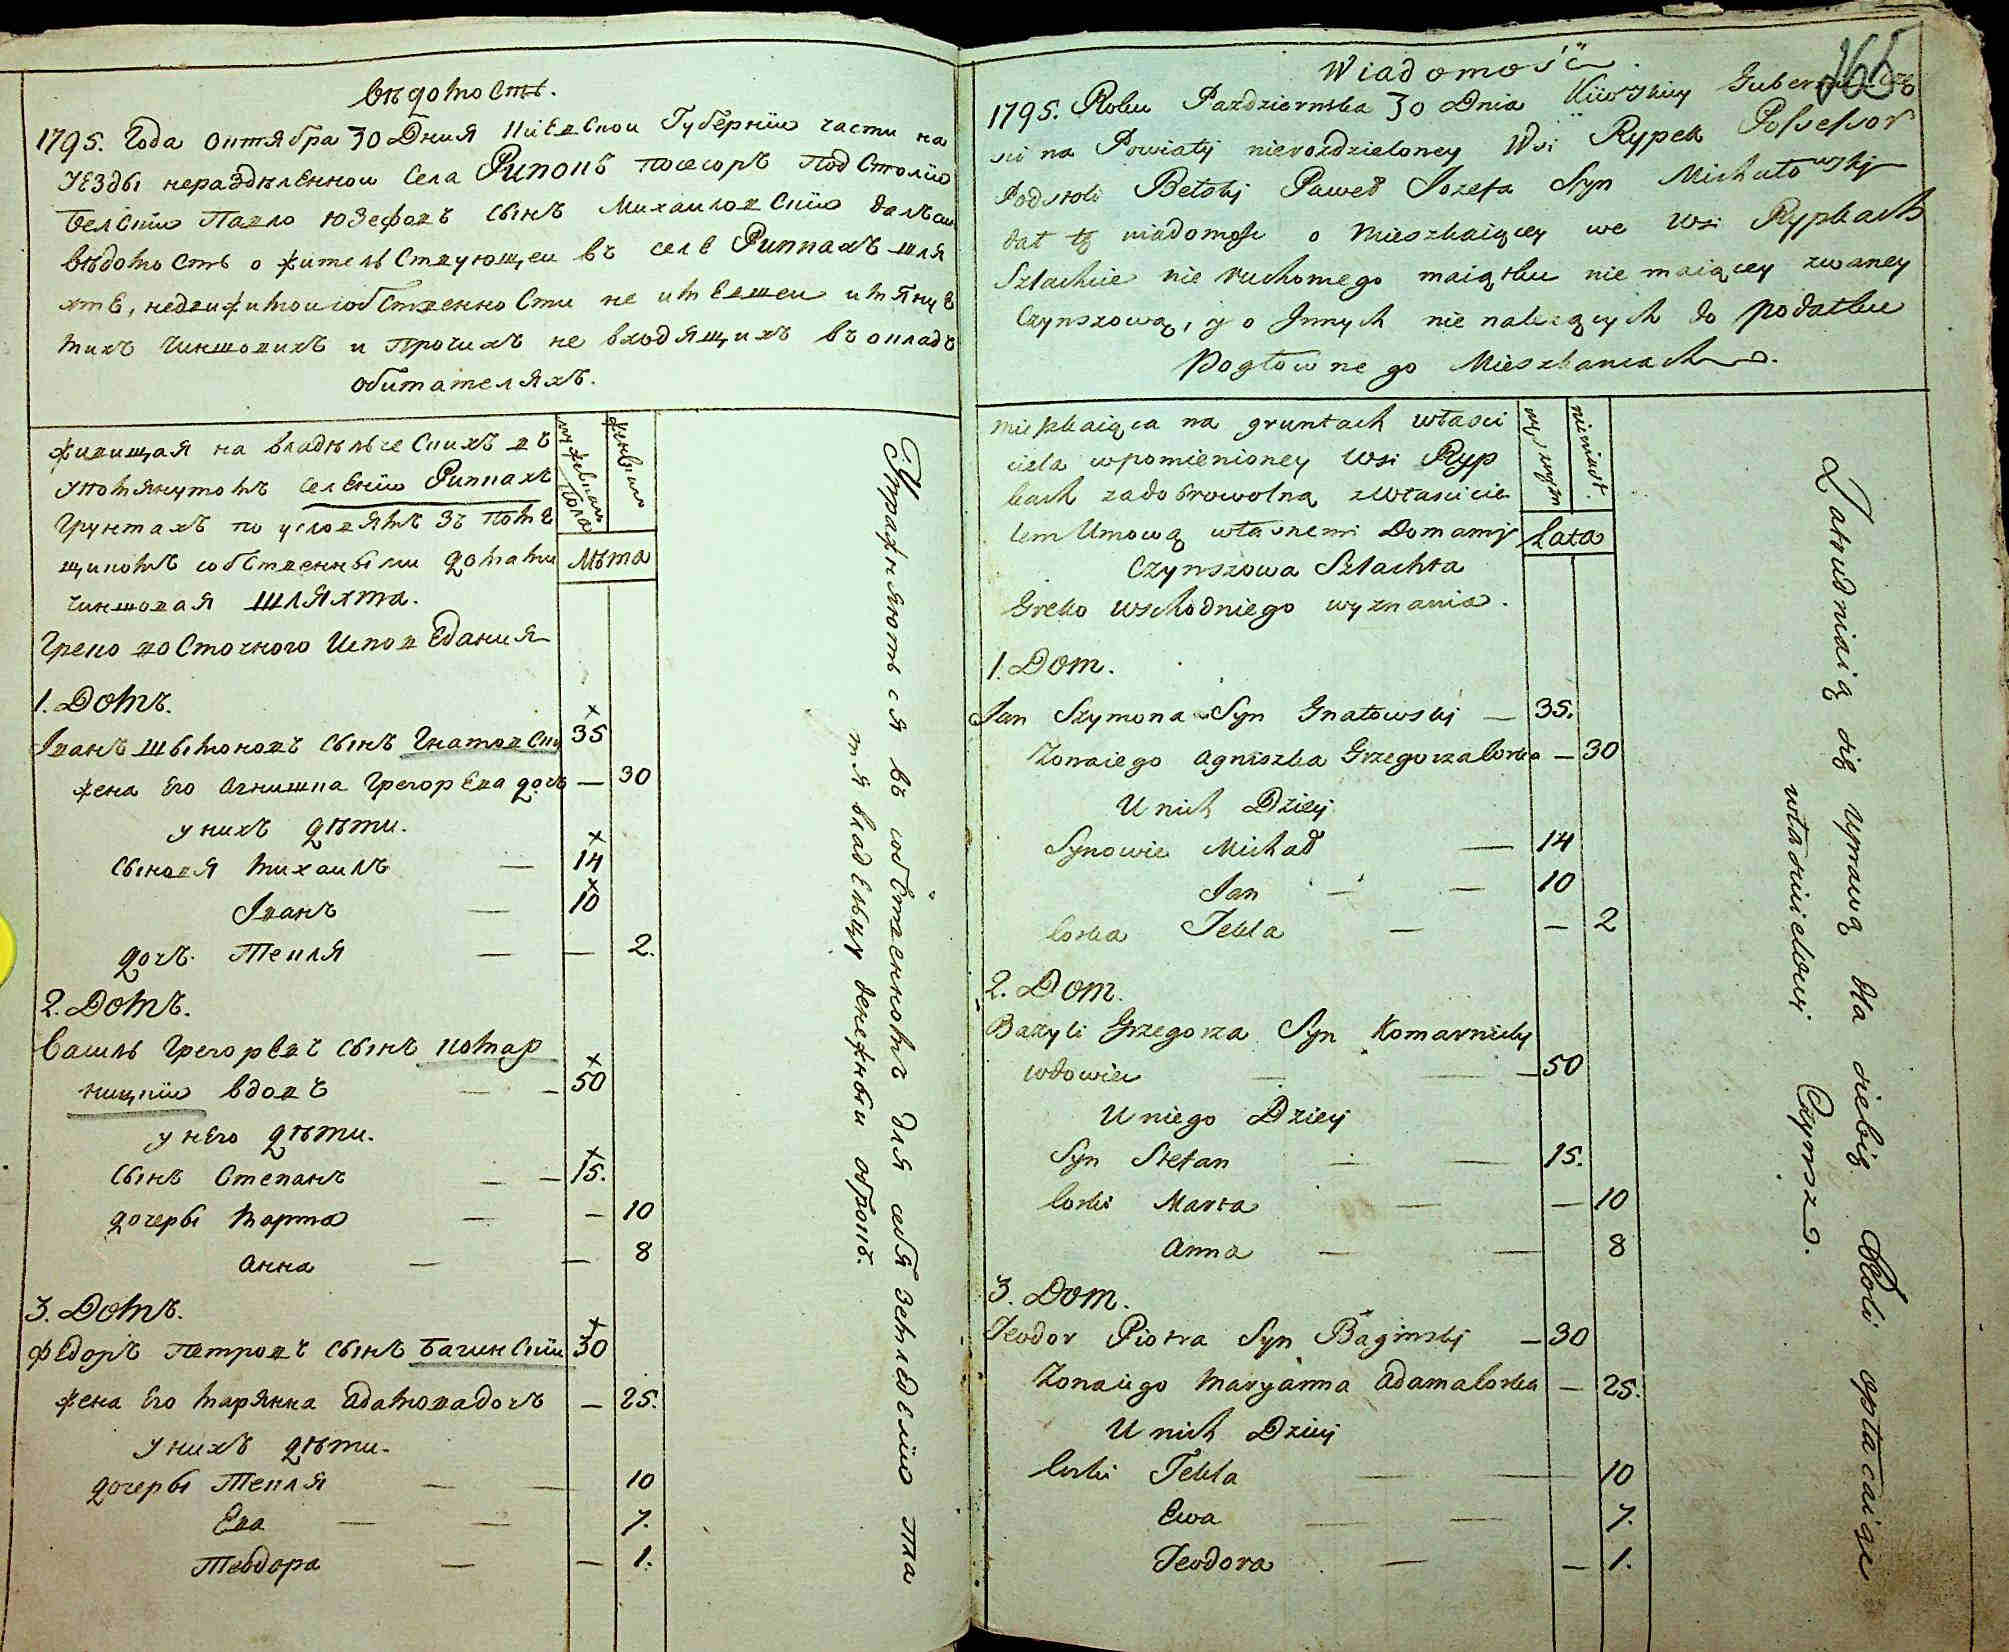 вѣдомость.
1795. Года октября 30 Дния Киевской Губернїи части на
уѣзды нераздѣленнои Села Рипокъ посесоръ Подстолїи
Белскїи Павло Юзефовъ сынъ Михаиловскїи далъ сїи
вѣдомость о жительствующеи въ селе Рипкахъ шля
хте, недвижимои собственности не имѣвшеи имянуе
михъ чиншовихъ и прочихъ не входящихъ въ окладъ
обитателяхъ.
живищая на владѣлческихъ въ
упомянутомъ селенїи Рипкахъ
грунтахъ по условямъ зъ поме
щикомъ собственными домами
чиншовая шляхта.
Греко восточного Исповедания
мужеска
пола
женскаго
лѣта
1. Домъ.
Іванъ Шымоновъ сынъ Гнатовски 35
жена его Агнишка Грегорева дочь — 30
у нихъ дѣти.
сыновя Михаилъ — 14
Іванъ — 10
дочь Текля — — 2.
2. Домъ.
Василь Грегоревъ сынъ Комар
ницкїи вдовъ — — 50
у него дѣти.
сынъ Степанъ — — 15.
дочеры Марта — — 10
Анна — — 8
3. Домъ.
Федоръ Петровъ сынъ Багинскїи 30
жена его Марянна Адамова дочъ — 25.
у нихъ дѣти.
дочеры Текля — — 10
Ева — — 7.
Теодора — — 1.
Упражняютъся въ собственномъ для себя земледелїю пла
тя владельцу денежныи оброкъ.
165
Wiadomość
1795. Roku Pazdziernika 30 Dnia Kiiowskiey Gubernii czę
sci na Powiaty nierozdzieloney Wsi Rypek Possessor
Podstoli Bełski Paweł Jozefa Syn Michałowskj
dał tę wiadomość o Mieszkaiącey we wsi Rypkach
Szlachcie nie ruchomego maiątku nie maiącey zwaney
Czynszową, y o Jnnych nie należących do podatku
Pogłównego Mieszkancach.
mieszkaiąca na gruntach własci
ciela wpomienioney Wsi Ryp
kach za dobrowolną z własicicie
lem Umową własnemi Domamj
Czynszowa Szlachta
Greko wschodniego wyznania.
męzczyzn
niewiast.
Lata
1. Dom.
Jan Szymona Syn Gnatowskj — 35.
Zona iego Agniszka Grzegorza Corka — 30
U nich Dziey
Synowie Michał — 14
Jan — — 10
Corka Tekla — — 2
2. Dom.
Bazyli Grzegorza Syn Komarnicky
wdowiec — — 50
U niego Dziey
Syn Stefan — — 15.
Corki Marta — — 10
Anna — — 8
3. Dom.
Teodor Piotra Syn Baginskj — 30
Zona iego Maryanna Adama Corka — 25.
U nich Dziey
Corki Tekla — — 10
Ewa — — 7.
Teodora — — 1.
Zatrudniaią się uprawą dla siebię Roli opłacaiąc
własicielowj Czynsz.